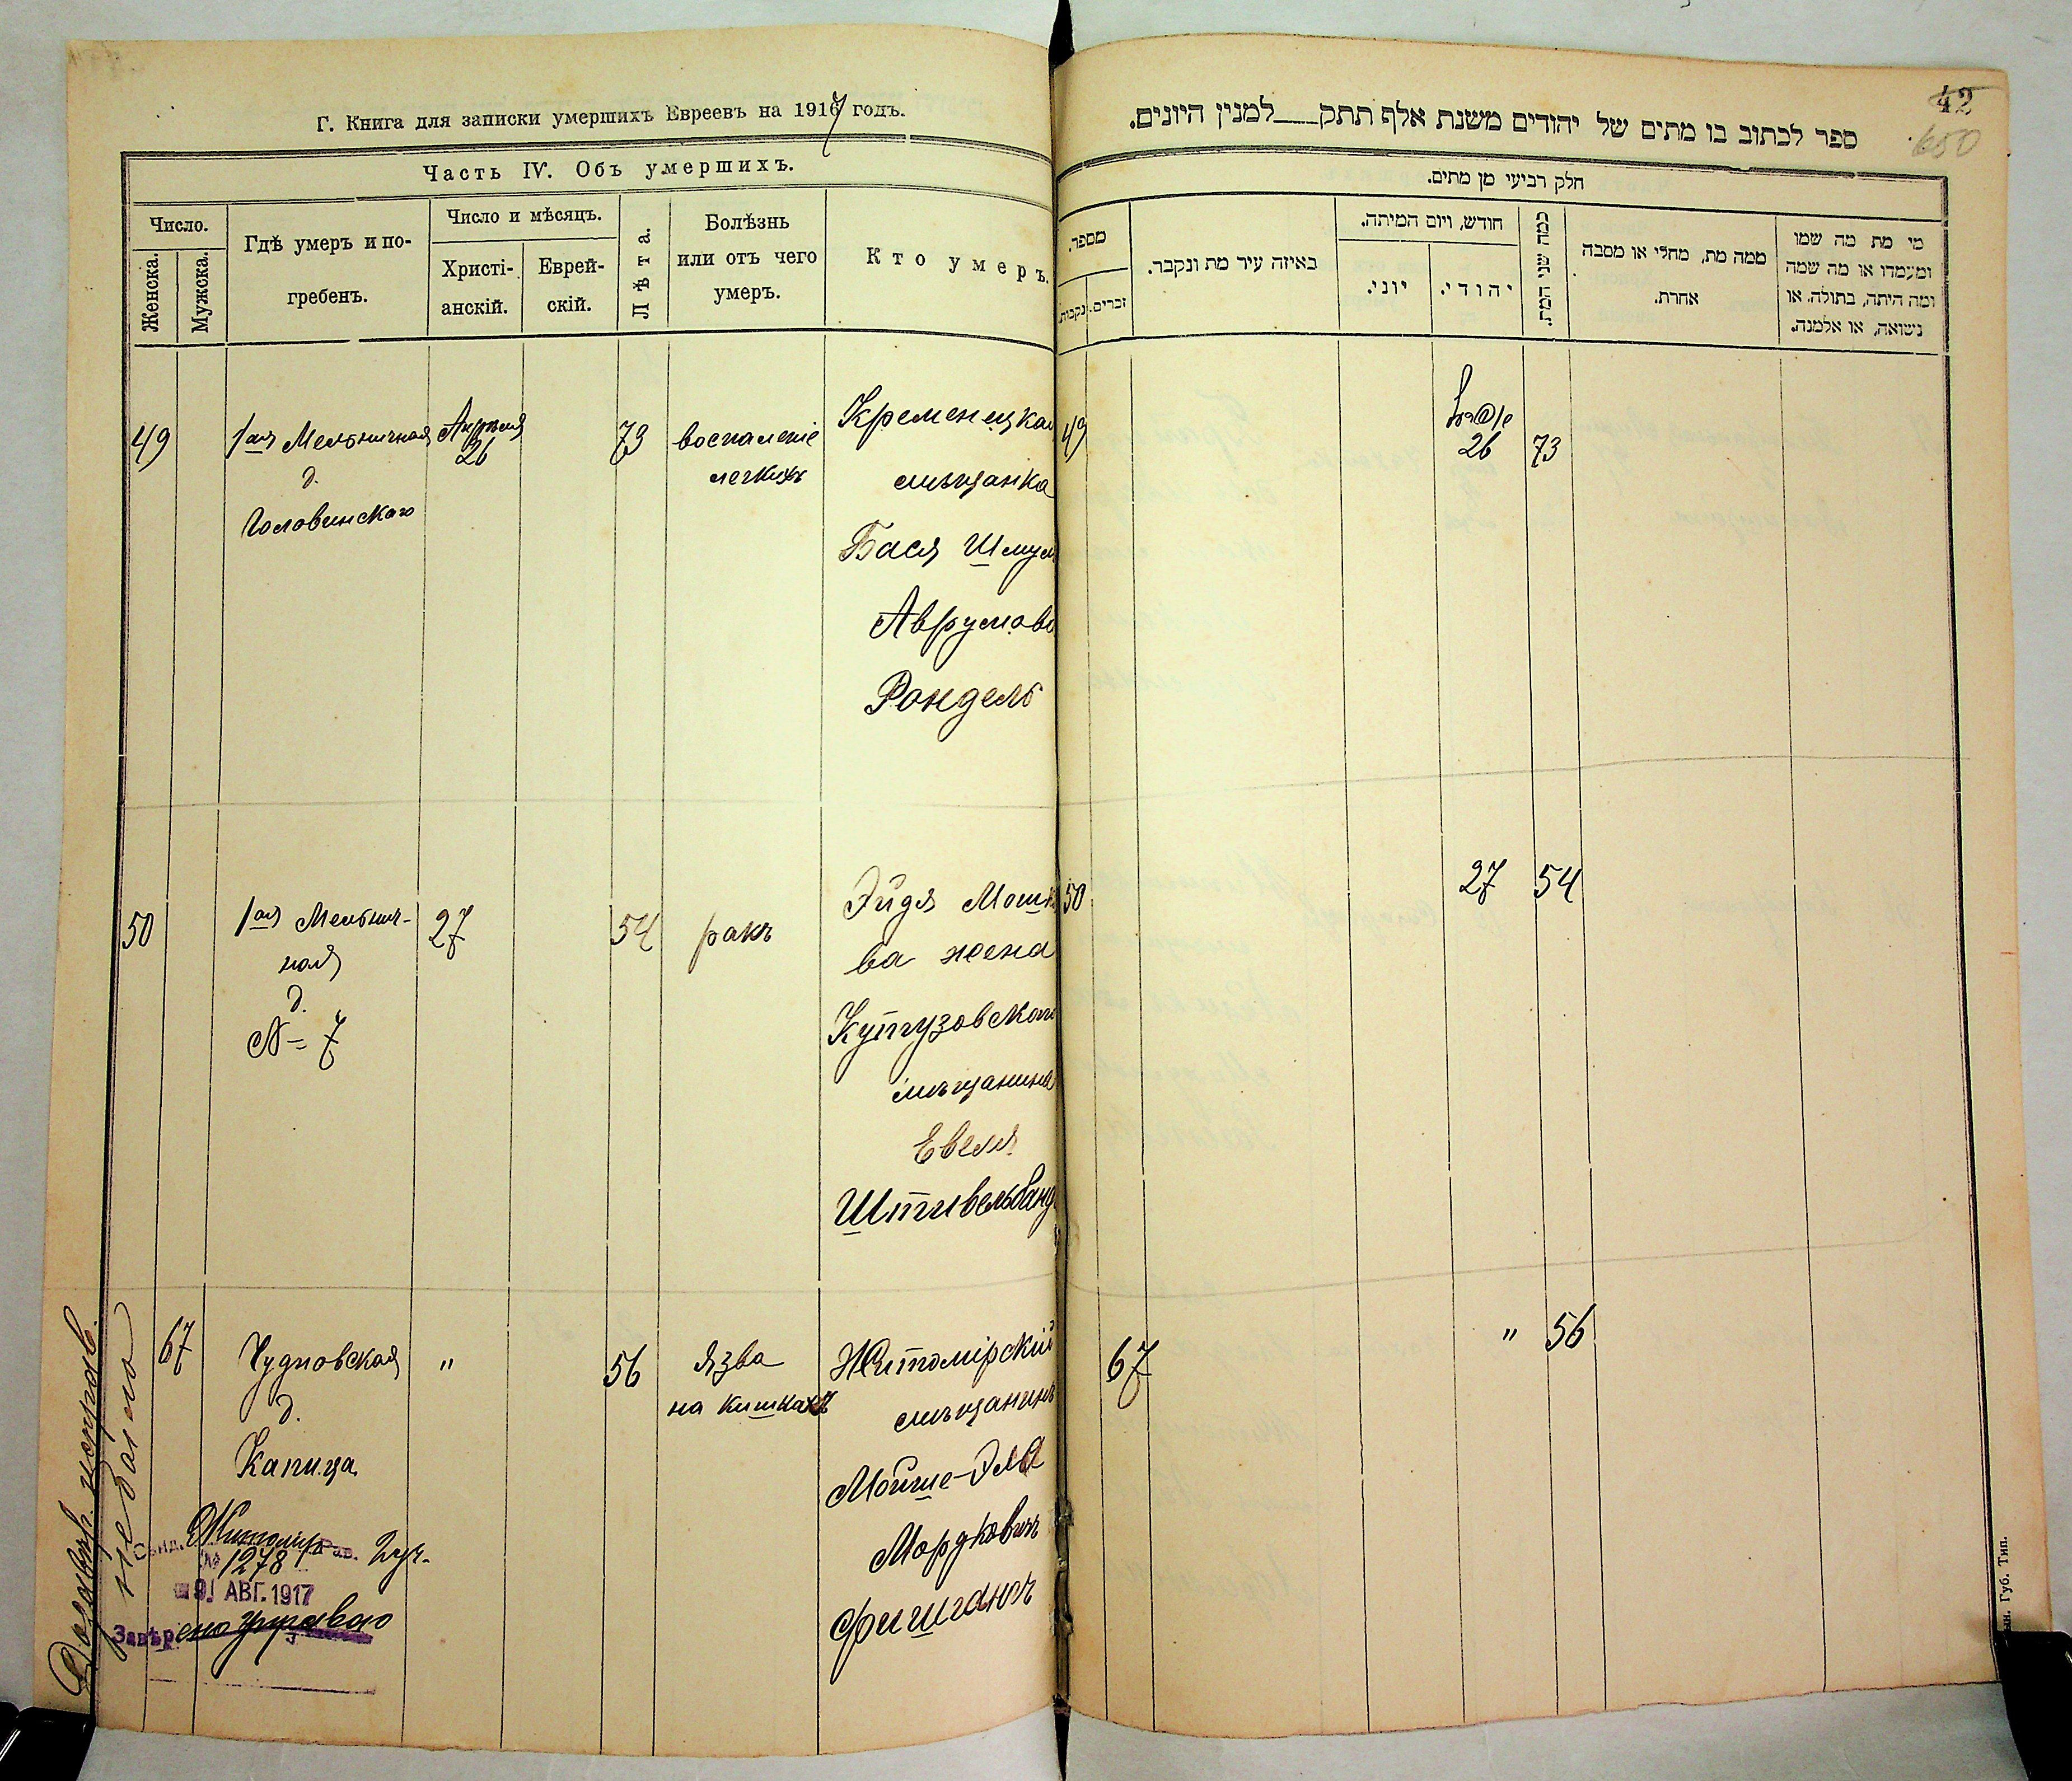 Г. Книга для записки умершихъ Евреевъ на 1917 годъ.
Часть IV. Объ умершихъ.
Число.
Женска.
Мужска.
Гдѣ умеръ и по-
гребенъ.
Число и мѣсяцъ.
Христі-
анскій.
Еврей-
скій.
Лѣта.
Болѣзнь
или отъ чего
умеръ.
Кто умеръ.
49
1ая Мельничная
д.
Головинскаго
Апрѣля
26
73
воспаленіе
легкихъ
Кременецкая
мѣщанка
Бася Шмул
Аврумова
Рондель
50
1ая Мельнич-
ная
д.
№ 7
27
54
ракъ
Эйдя Мошк
ва жена
Кутузовскаго
мѣщанина
Евеля
Штивельбанд
67
Чудновская
д.
Капица
"
56
язва
на кишкахъ
Житомірскій
мѣщанинъ
Мойше-Эля
Мордковичъ
Фишганюк
Житомір
№ 1278
9 АВГ. 1917
Завѣрено
не было
42
650
ספר לכתוב בו מתים של יהודים משנת אלף תתק___למנין היונים.
חלק רביעי מן מתים.
מספר.
נקבות.
זכרים.
באיזה עיר מת ונקבר.
חודש, ויום המיתה.
יוני.
יהודי.
כמה שני המת.
ממה מת, מחלי או מסבה
אחרת.
מי מת מה שמו
ומעמדו או מה שמה
ומה היתה, בתולה. או
נשואה, או אלמנה.
49
26
73
50
27
54
67
"
56
Губ. Тип.